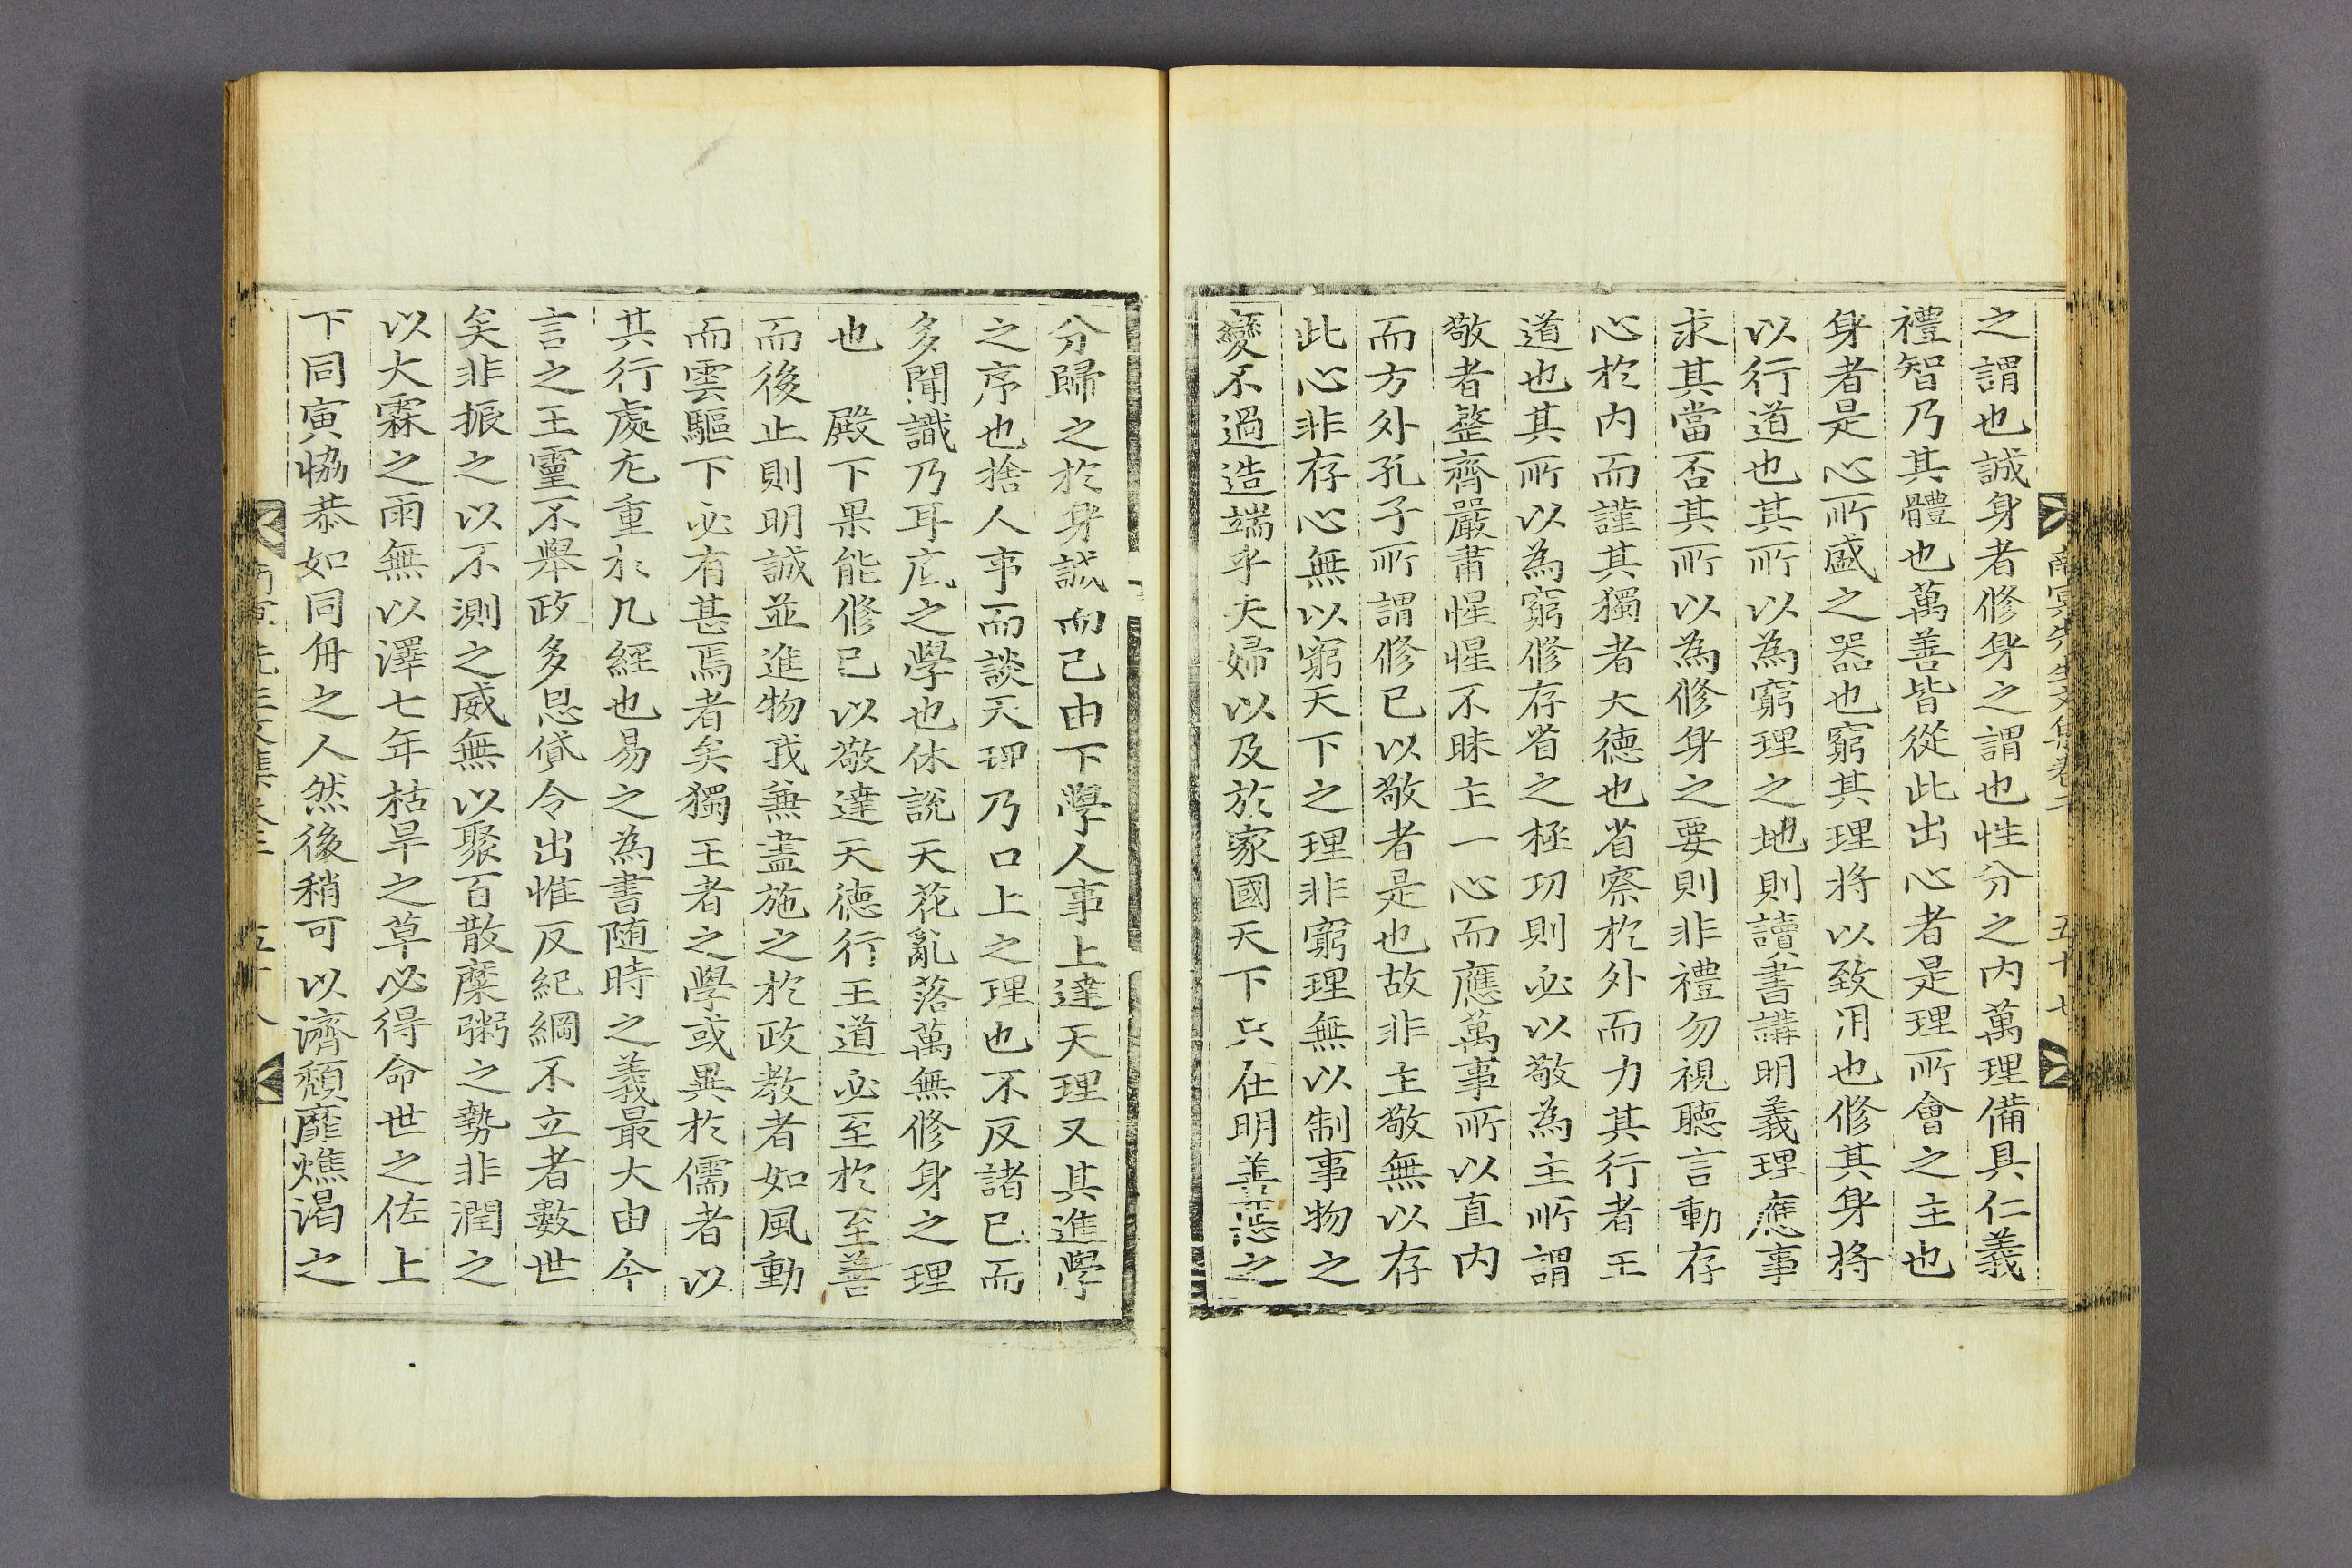 之謂也誠身者修身之謂也性分之內萬理備具仁義
禮智乃其體也萬善皆從此出心者是理所會之主也
身者是心所盛之器也窮其理將以致用也修其身將
以行道也其所以為窮理之地則讀書講明義理應事
求其當否其所以為修身之要則非禮勿視聽言動存
心於內而謹其獨者大德也省察於外而力其行者王
道也其所以為窮修存省之極功則必以敬為主所謂
敬者整齊嚴肅惺惺不昧主一心而應萬事所以直內
而方外孔子所謂修已以敬者是也故非主敬無以存
此心非存心無以窮天下之理非窮理無以制事物之
變不過造端乎夫婦以及於家國天下只在明善惡之
分歸之於身誠而已由下學人事上達天理又其進學
之序也捨人事而談天理乃口上之理也不反諸已而
多聞識乃耳底之學也休說天花亂落萬無修身之理
也 殿下果能修已以敬達天德行王道必至於至善
而後止則明誠並進物我兼盡施之於政教者如風動
而雲驅下必有甚焉者矣獨王者之學或異於儒者以
其行處尤重於九經也易之為書隨時之義最大由今
言之王靈不舉政多恩貸令出惟反紀綱不立者數世
矣非振之以不測之威無以聚百散糜粥之勢非潤之
以大霖之雨無以澤七年枯旱之草必得命世之佐上
下同寅恊恭如同舟之人然後稍可以濟頹靡燋渴之